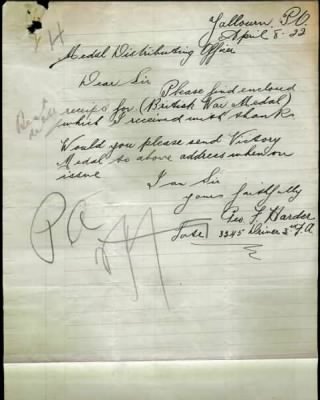 Yallourn, P.O.
April 8 - 22
Medal Distributing Officer
Dear Sir
Please find enclosed
receipt for (British War Medal)
which I received with thanks
Would you please send Victory
Medal to above address when on
issue
I am Sir
yours faithfully
Geo. F. Harder
late 3245 Driver 2nd F.A
PA